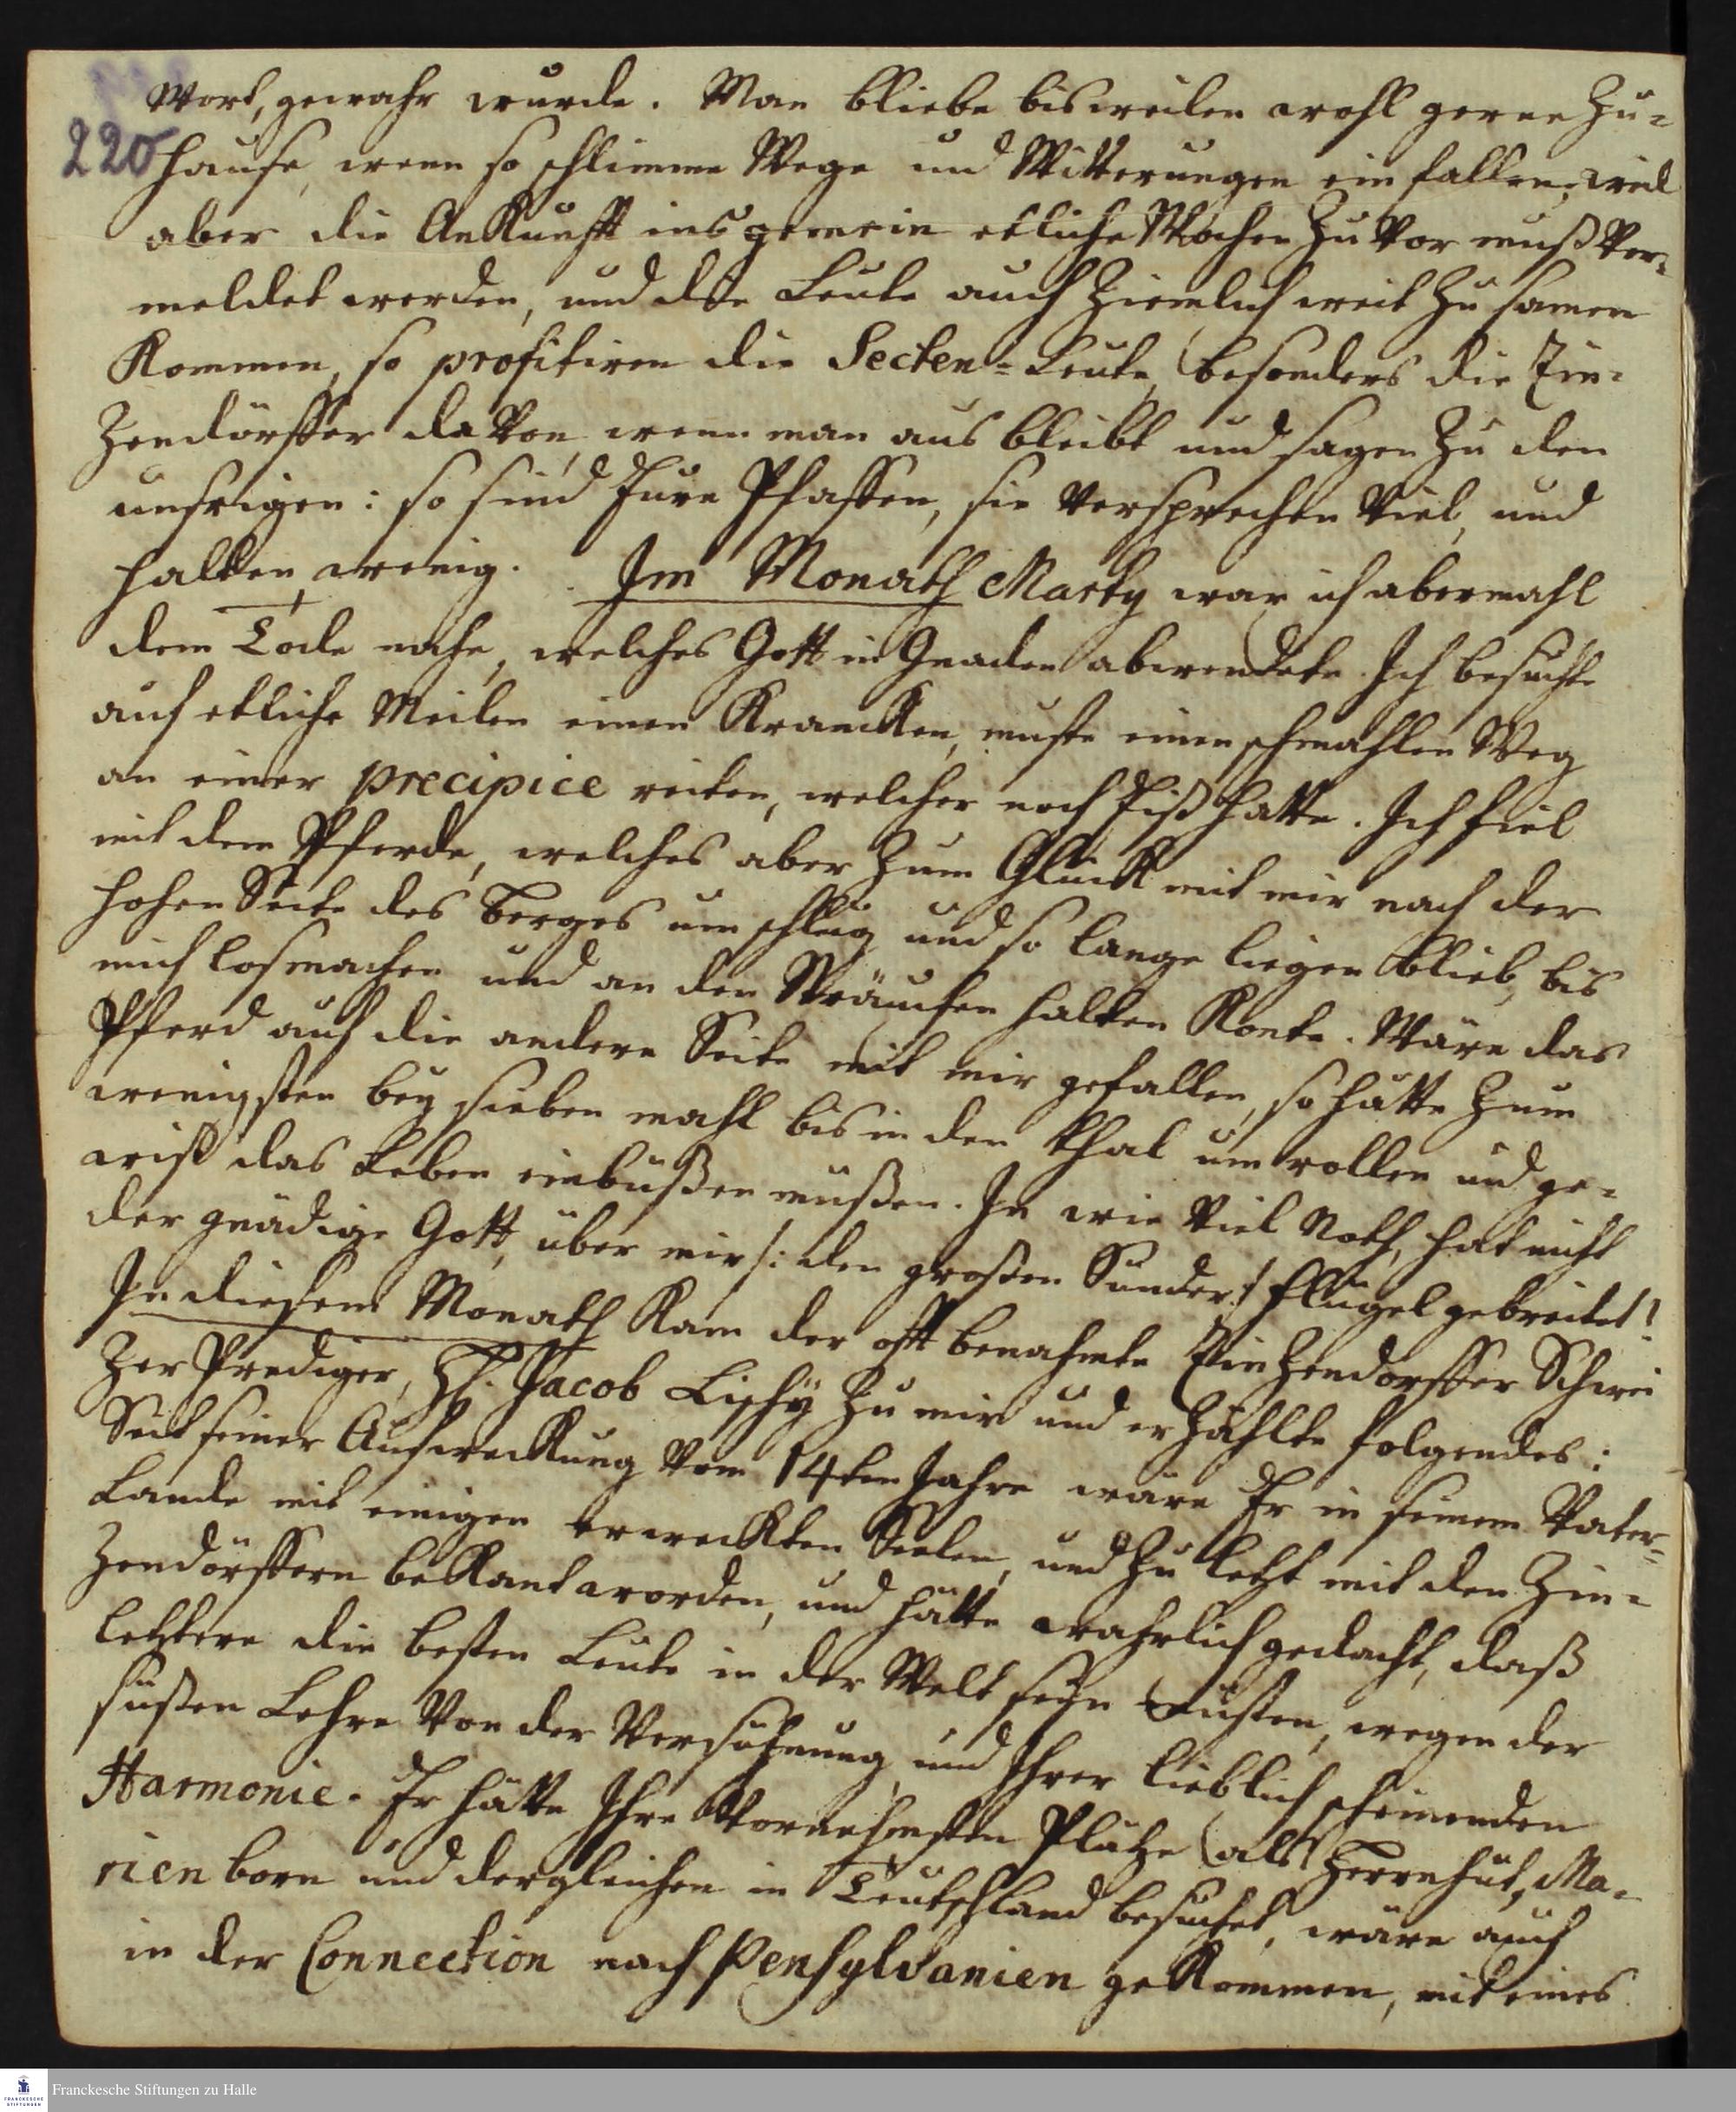 220
Wort, gewahr wurde. Man bliebe bisweilen wohl gerne zu-
hause, wenn so schlimme Wege und Witterungen ein fallen, weil
aber die Ankunft ins gemein etliche Wochen zu vor muß ver-
meldet werden, und die Leute auch ziemlich weit zu samen
kommen, so profitiren die Secten-Leute, besonders die Zin-
zendörffer davon, wenn man aus bleibt und sagen zu den
unsrigen: so sind Eure Pfaffen, sie versprechen viel, und
halten wenig. Im Monath Marty war ich abermahl
dem Tode nahe, welches Gott in Gnaden abwendete. Ich besuchte
auf etliche Meilen einen Krancken, muste einen schmahlen Weg
an einer precipice reiten, welcher noch Eiß hatte. Ich fiel
mit dem Pferde, welches aber zum Glück mit mir nach der
hohen Seite des Berges um schlug und so lange liegen blieb, bis
mich losmachen und an den Sträuchen halten konte. Wäre das
Pferd auf die andere Seite mit mir gefallen, so hätte zum
wenigsten bey sieben mahl bis in den Thal um rollen und ge-
wiß das Leben einbüßen müßen. In wie viel Noth, hat nicht
der gnädige Gott, über mir /: den großen Sünder :/ Flügel gebreitet!
In diesem Monath kam der oft benahmte Zinzendorffer Schwei
zer Prediger, H. Jacob Lischÿ zu mir und erzählte folgendes:
Seit seiner Aufweckung vom 14ten Jahre wäre Er in seinem Vater-
Lande mit einigen erweckten Seelen, und zu letzt mit den Zin-
zendörffern bekant worden, und hätte wahrlich gedacht, daß
letztere die besten Leute in der Welt seÿn müsten, wegen der
süßen Lehre von der Versühnung und Ihrer lieblich scheinenden
Harmonie. Er hätte Ihre vornehmsten Plätze (als Herrnhut, Ma-
rienborn und dergleichen in Teutschland besuchet, wäre auch
in der Connection nach Pensylvanien gekommen, mit eines
Franckesche Stiftungen zu Halle
FRANCKESCHE
STIFTUNGEN